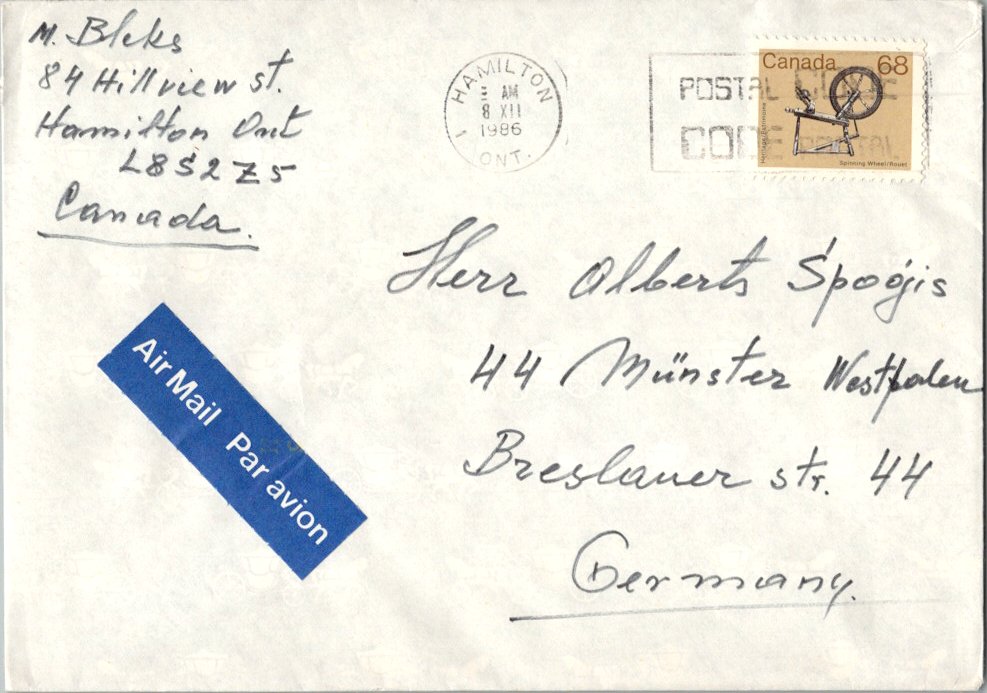 M. Bleks
84 Hillview st.
Hamilton Ont
L8S2Z5
Canada.
HAMILTON
AM
8 XII
1986
ONT.
POSTAL CODE
CODE POSTAL
Canada 68
Heritage Patrimoine
Spinning Wheel/Rouet
Herr Alberts Spoģis
44 Münster Westfalen
Breslauer str. 44
Germany.
Air Mail Par avion